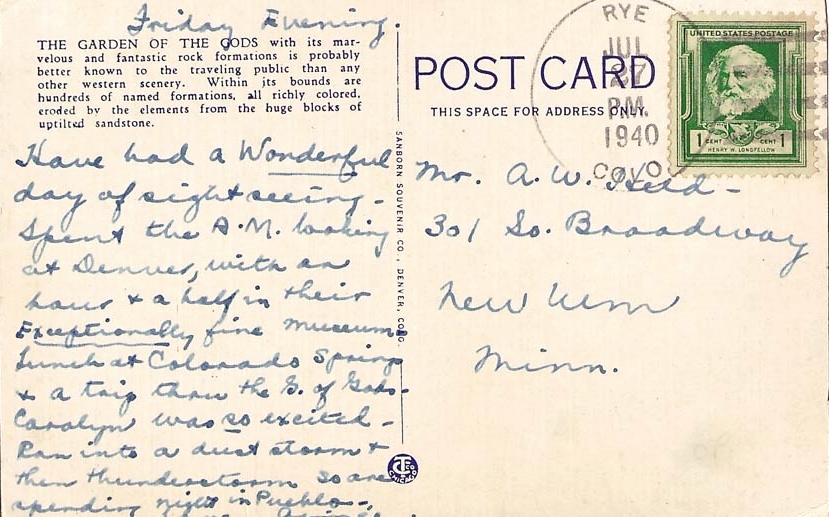 Friday Evening.
THE GARDEN OF THE GODS with its mar-
velous and fantastic rock formations is probably
better known to the traveling public than any
other western scenery. Within its bounds are
hundreds of named formations, all richly colored,
eroded by the elements from the huge blocks of
uptilted sandstone.
Have had a Wonderful
day of sight seeing -
Spent the A.M. looking
at Denver, with an
hour & a half in their
Exceptionally fine museum.
Lunch at Colorado Springs
& a trip thru the G. of Gods -
Caralyn was so excited -
Ran into a dust storm &
then thunderstorm so are
spending night in Pueblo -
SANBORN SOUVENIR CO., DENVER, COLO.
CHICAGO
POST CARD
THIS SPACE FOR ADDRESS ONLY.
RYE
JUL
27
P.M.
1940
COLO.
UNITED STATES POSTAGE
1 CENT CENT 1
HENRY W. LONGFELLOW
Mr. A. W.
301 So. Broadway
New Ulm
Minn.